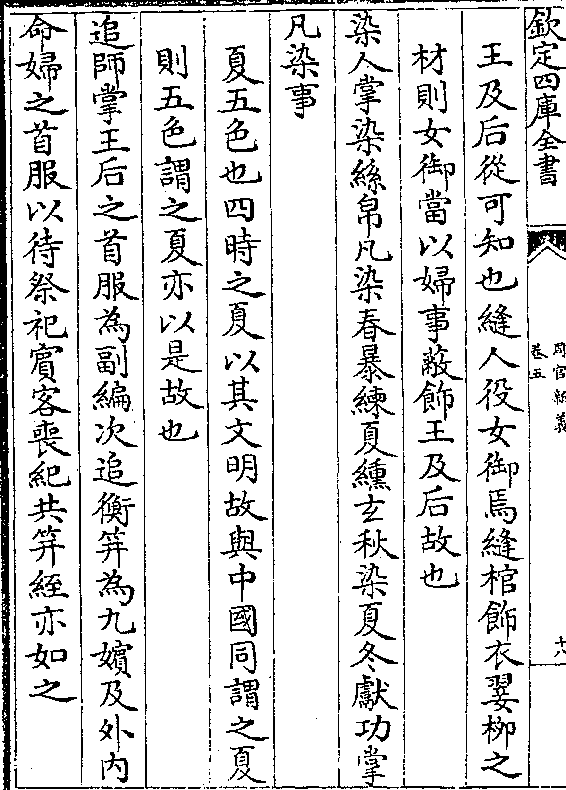 欽定四庫全書
周官新義
卷五
十八
王及后從可知也縫人役女御焉縫棺飾衣翣柳之
材則女御當以婦事蔽飾王及后故也
染人掌染絲帛凡染春暴練夏纁玄秋染夏冬獻功掌
凡染事
夏五色也四時之夏以其文明故與中國同謂之夏
則五色謂之夏亦以是故也
追師掌王后之首服為副編次追衡笄為九嬪及外内
命婦之首服以待祭祀賓客喪紀共笄絰亦如之